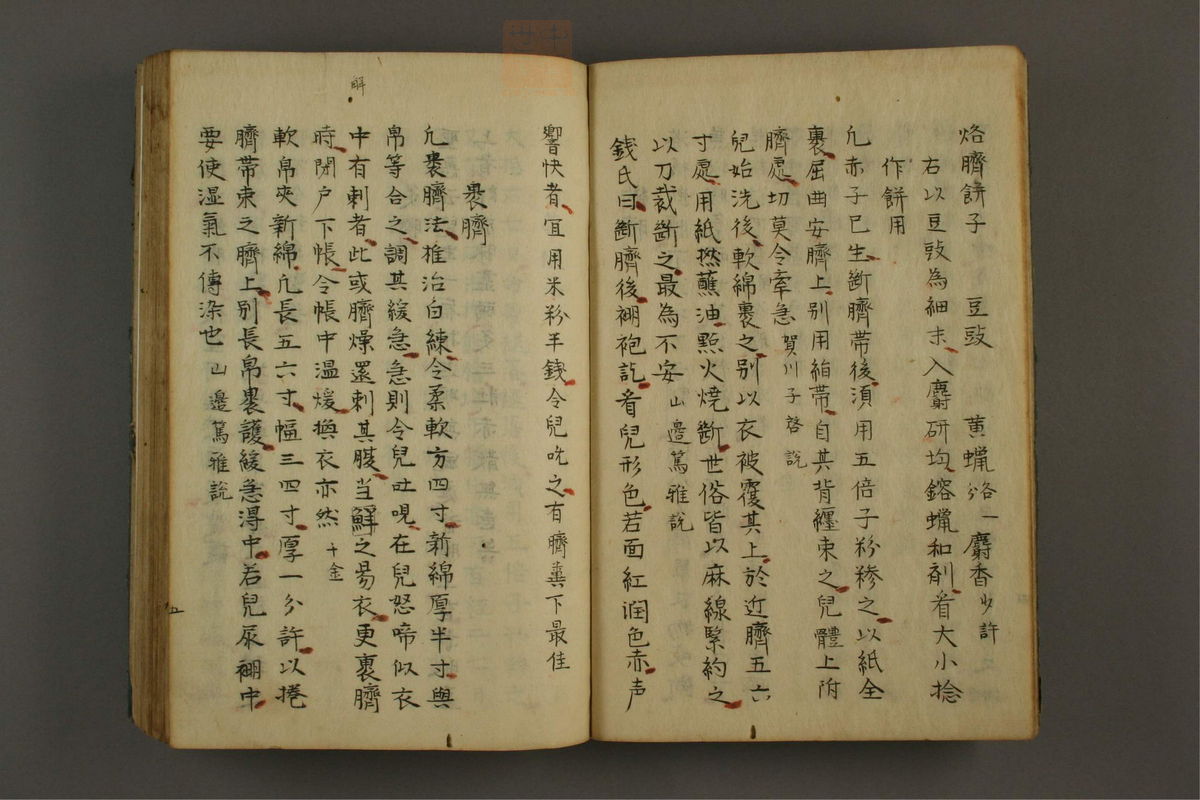 烙臍餅子　豆豉　黄蠟各一分　麝香少許
右以豆豉為細末入麝研均鎔蠟和剤看大小捻
作餅用
凢赤子已生斷臍帶後須用五倍子粉糝之以紙全
裹屈曲安臍上别用絹帶自其背纒束之兒體上附
臍處切莫令牽急　賀川子啓説
兒始洗後軟綿裹之别以衣被覆其上於近臍五六
寸處用紙撚蘸油點火焼斷世俗皆以麻線緊約之
以刀裁斷之最為不安　山邊篤雅説
錢氏曰斷臍後襁袍訖看兒形色若面紅润色赤声
響快者冝用米粉半錢令兒吮之有臍糞下最佳
裹臍
凢裹臍法椎治白練令柔軟方四寸新綿厚半寸與
帛等合之調其緩急急則令兒吐哯在兒怒啼似衣
中有刺者此或臍燥還刺其腹当解之易衣更裹臍
時閉戸下帳令帳中温煖換衣亦然　千金
軟帛夾新綿凢長五六寸幅三四寸厚一分許以捲
臍帶束之臍上别長帛裹護緩急淂中若兒尿襁中
要使湿氣不傳染也　山邊篤雅説
解
五